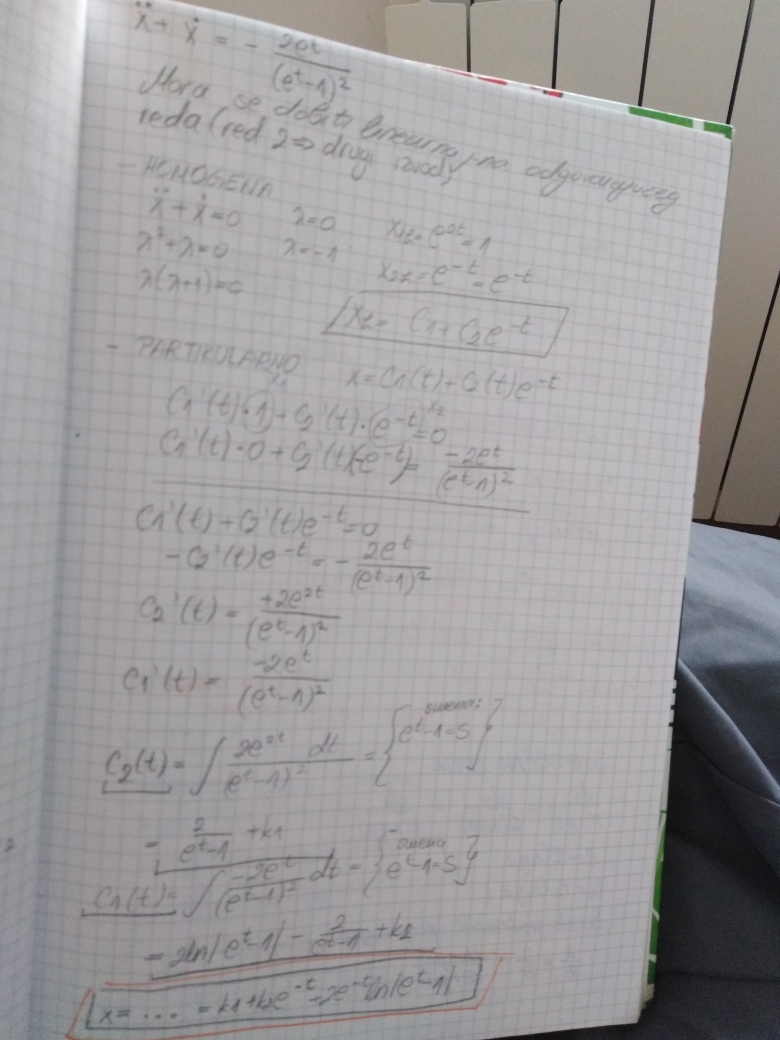 ẍ + ẋ = - 2e^t / (e^t-1)^2
Mora se dobiti linearna, odgovarajućeg
reda (red 2 => drugi izvod)
- HOMOGENA
ẍ + ẋ = 0 λ=0 x1z = e^0t = 1
λ^2+λ=0 λ=-1 x2z = e^-t = e^-t
λ(λ+1)=0
xz = C1 + C2e^-t
- PARTIKULARNO x = C1(t) + C2(t)e^-t
x1 x2
C1'(t)·1 + C2'(t)·e^-t = 0
C1'(t)·0 + C2'(t)(-e^-t) = -2e^t / (e^t-1)^2
C1'(t) + C2'(t)e^-t = 0
-C2'(t)e^-t = - 2e^t / (e^t-1)^2
C2'(t) = +2e^2t / (e^t-1)^2
C1'(t) = -2e^t / (e^t-1)^2
C2(t) = ∫ 2e^2t dt / (e^t-1)^2 = { smena: e^t-1=S }
= 2 / (e^t-1) + k1
C1(t) = ∫ -2e^t / (e^t-1)^2 dt = { smena e^t-1=S }
= 2ln|e^t-1| - 2 / (e^t-1) + k2
x = ... = k1 + k2e^-t + 2e^-t ln|e^t-1|